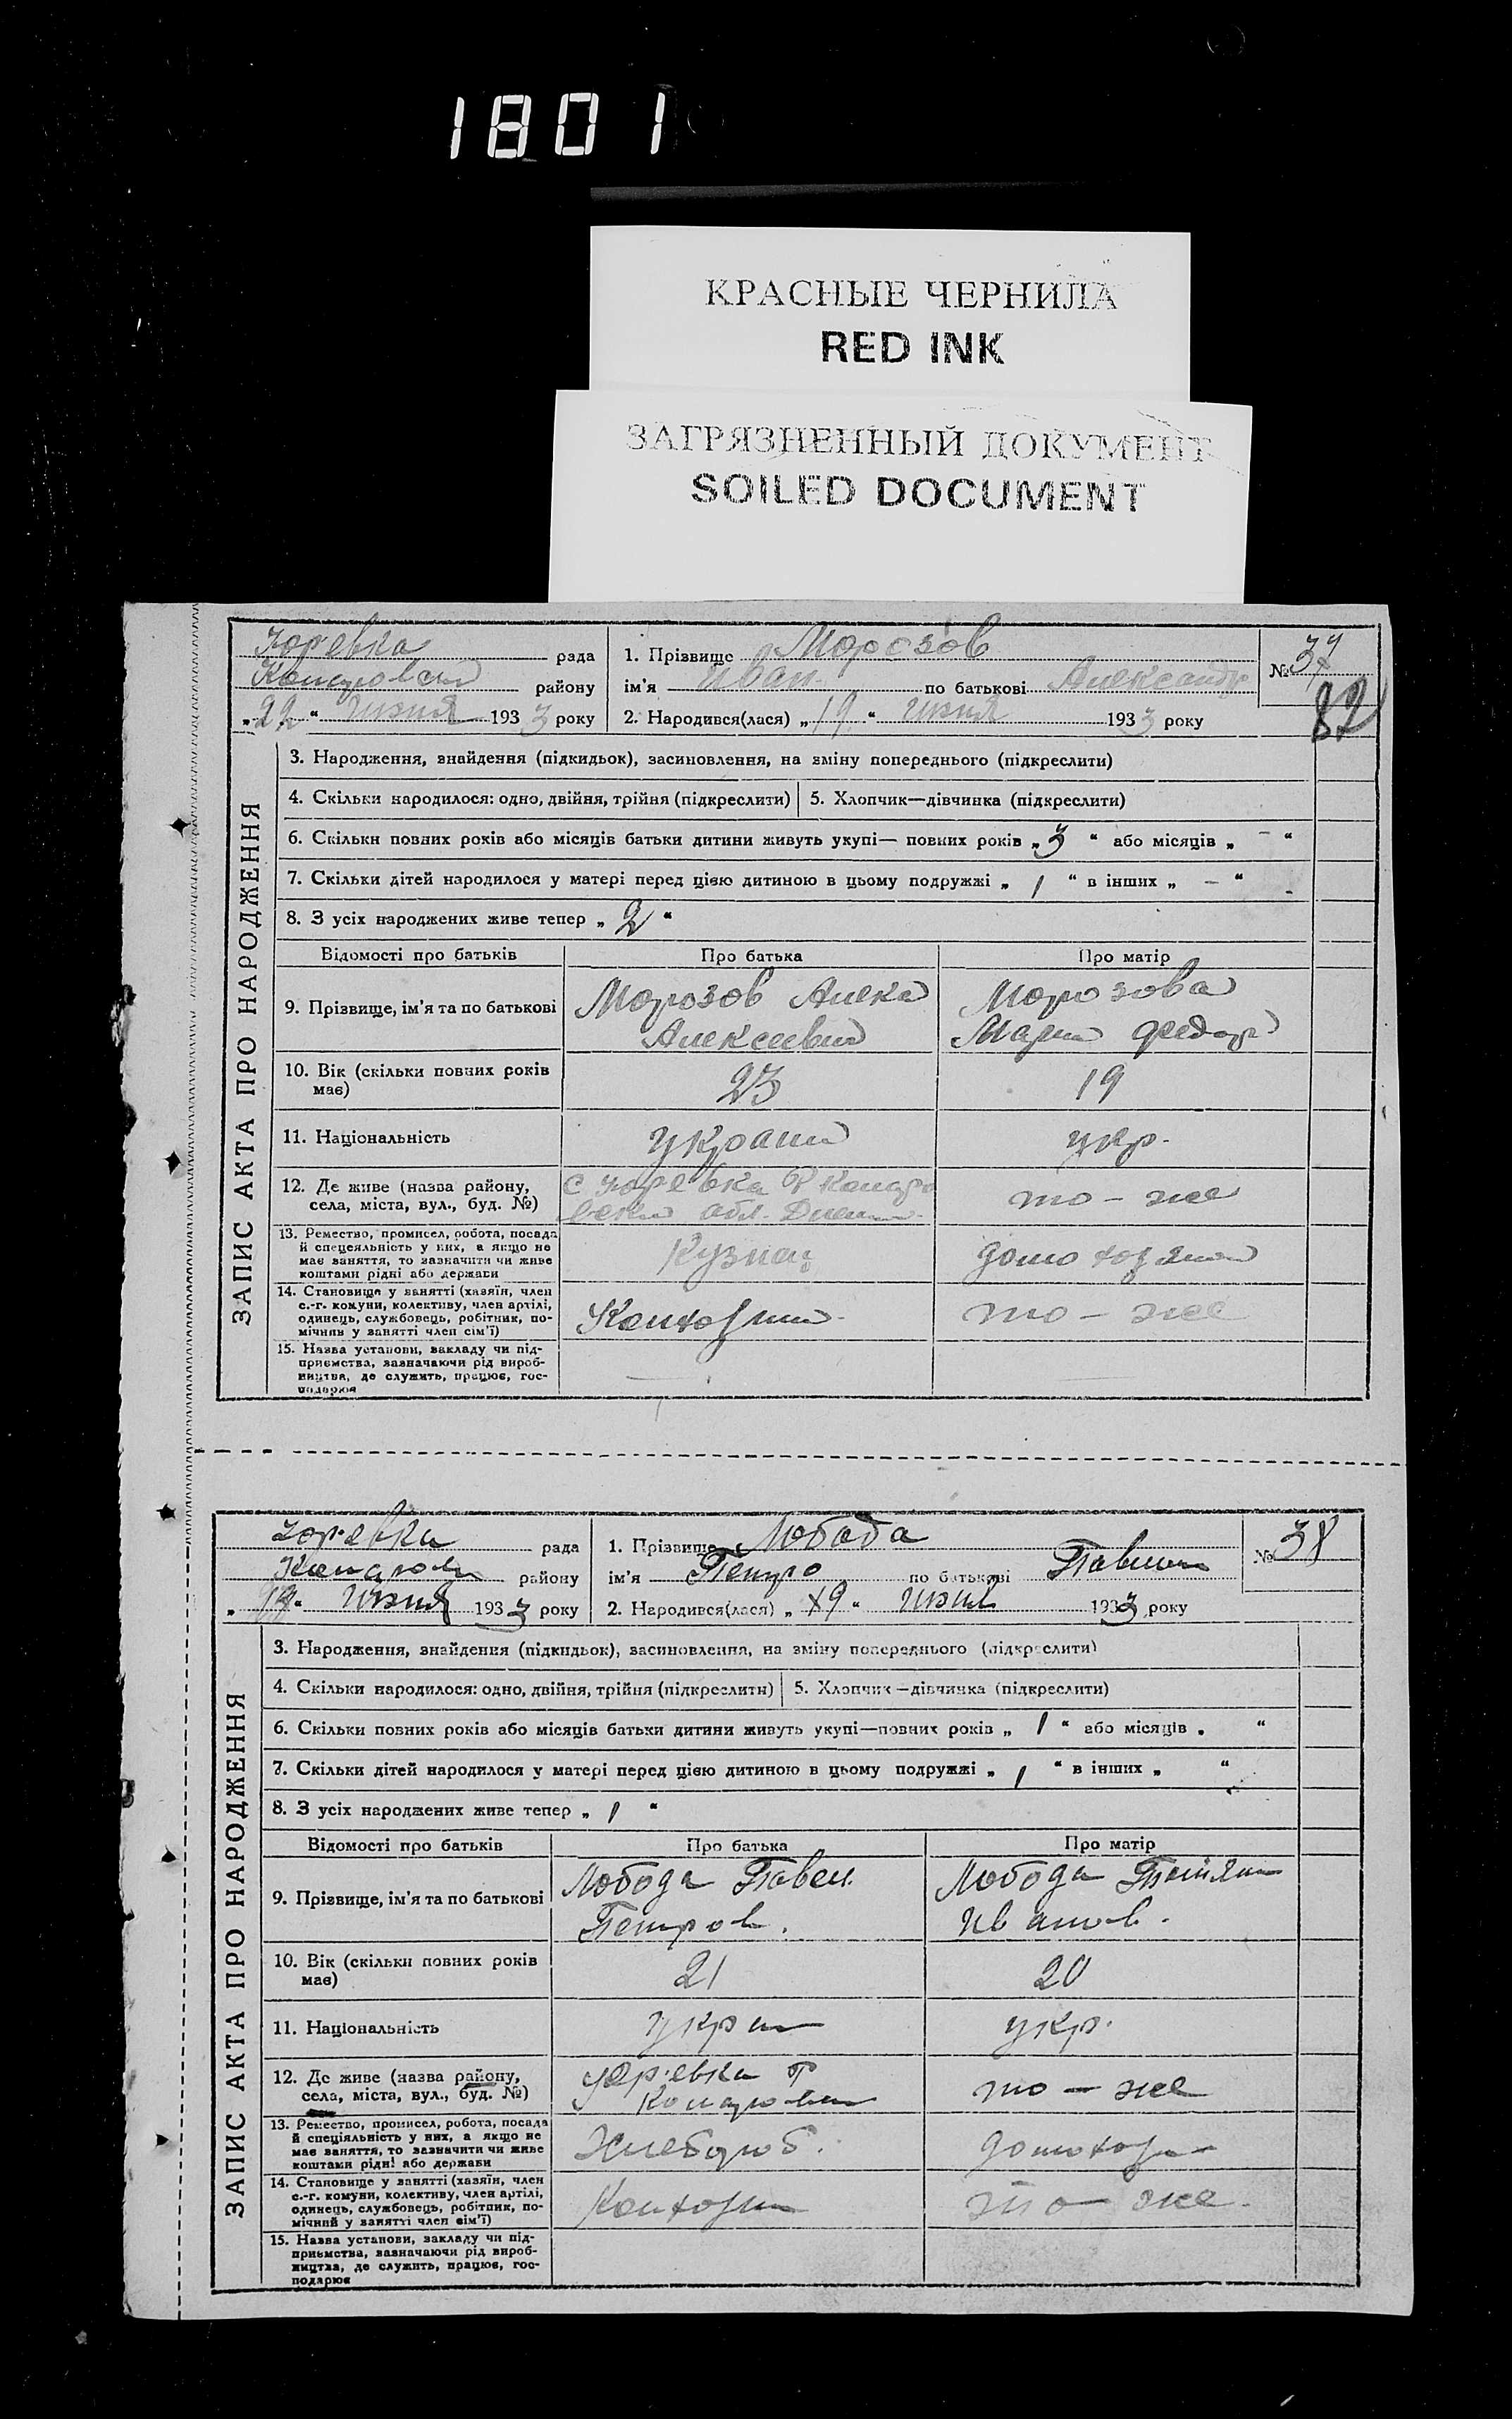 1801
КРАСНЫЕ ЧЕРНИЛА
RED INK
ЗАГРЯЗНЕННЫЙ ДОКУМЕНТ
SOILED DOCUMENT
ЗАПИС АКТА ПРО НАРОДЖЕННЯ
Юревка рада
району
„22“ июня 1933 року
1. Прізвище Морозов
ім'я Иван по батькові Александр
2. Народився(лася) „19“ июня 1933 року
№ 37
82
3. Народження, знайдення (підкидьок), засиновлення, на зміну попереднього (підкреслити)
4. Скільки народилося: одно, двійня, трійня (підкреслити) 5. Хлопчик—дівчинка (підкреслити)
6. Скільки повних років або місяців батьки дитини живуть укупі— повних років „3“ або місяців „—“
7. Скільки дітей народилося у матері перед цією дитиною в цьому подружжі „1“ в інших „—“
8. З усіх народжених живе тепер „2“
Відомості про батьків Про батька Про матір
9. Прізвище, ім'я та по батькові
Морозов Алекс
Алексеевич
Морозова
Мария Федор
10. Вік (скільки повних років має)
23 19
11. Національність
укр.
12. Де живе (назва району,
села, міста, вул., буд. №)
с Юревка
то - же
13. Ремество, промисел, робота, посада
й спеціяльність у них, а якщо не
має заняття, то зазначити чи живе
коштами рідні або держави
Кузнец
14. Становище у занятті (хазяїн, член
с.-г. комуни, колективу, член артілі,
одинець, службовець, робітник, по-
мічний у занятті член сім'ї)
то - же
15. Назва установи, закладу чи під-
приємства, зазначаючи рід вироб-
ництва, де служить, працює, гос-
подарює
ЗАПИС АКТА ПРО НАРОДЖЕННЯ
Юревка рада
району
июня 1933 року
1. Прізвище Лобода
ім'я Петро по батькові
2. Народився(лася) „19“ июня 1933 року
№ 38
3. Народження, знайдення (підкидьок), засиновлення, на зміну попереднього (підкреслити)
4. Скільки народилося: одно, двійня, трійня (підкреслити) 5. Хлопчик—дівчинка (підкреслити)
6. Скільки повних років або місяців батьки дитини живуть укупі—повних років „1“ або місяців „ “
7. Скільки дітей народилося у матері перед цією дитиною в цьому подружжі „1“ в інших „ “
8. З усіх народжених живе тепер „1“
Відомості про батьків Про батька Про матір
9. Прізвище, ім'я та по батькові
Лобода Павел
Петров.
Лобода Татьян
Иванов.
10. Вік (скільки повних років має)
21 20
11. Національність
укр.
12. Де живе (назва району,
села, міста, вул., буд. №)
Юревка
то - же
13. Ремество, промисел, робота, посада
й спеціяльність у них, а якщо не
має заняття, то зазначити чи живе
коштами рідні або держави
Хлебороб.
14. Становище у занятті (хазяїн, член
с.-г. комуни, колективу, член артілі,
одинець, службовець, робітник, по-
мічний у занятті член сім'ї)
то - же
15. Назва установи, закладу чи під-
приємства, зазначаючи рід вироб-
ництва, де служить, працює, гос-
подарює